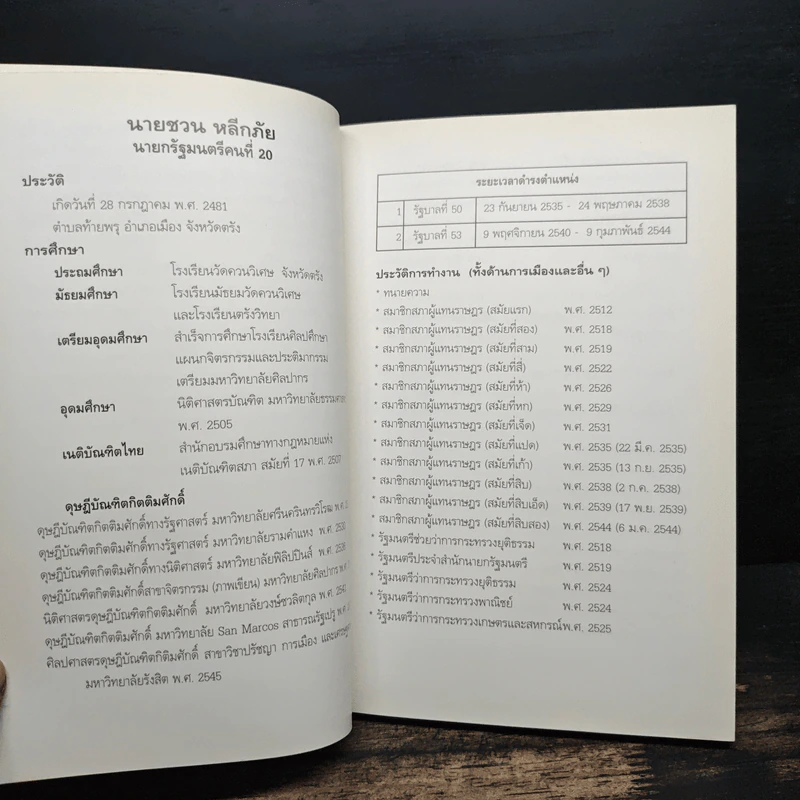 นายชวน หลีกภัย
นายกรัฐมนตรีคนที่ 20
ประวัติ
เกิดวันที่ 28 กรกฎาคม พ.ศ. 2481
ตำบลท้ายพรุ อำเภอเมือง จังหวัดตรัง
การศึกษา
ประถมศึกษา โรงเรียนวัดควนวิเศษ จังหวัดตรัง
มัธยมศึกษา โรงเรียนมัธยมวัดควนวิเศษ
และโรงเรียนตรังวิทยา
เตรียมอุดมศึกษา สำเร็จการศึกษาโรงเรียนศิลปศึกษา
แผนกจิตรกรรมและประติมากรรม
เตรียมมหาวิทยาลัยศิลปากร
อุดมศึกษา นิติศาสตรบัณฑิต มหาวิทยาลัยธรรมศาส
พ.ศ. 2505
เนติบัณฑิตไทย สำนักอบรมศึกษาทางกฎหมายแห่ง
เนติบัณฑิตสภา สมัยที่ 17 พ.ศ. 2507
ดุษฎีบัณฑิตกิตติมศักดิ์
ดุษฎีบัณฑิตกิตติมศักดิ์ทางรัฐศาสตร์ มหาวิทยาลัยศรีนครินทรวิโรฒ พ.ศ.
ดุษฎีบัณฑิตกิตติมศักดิ์ทางรัฐศาสตร์ มหาวิทยาลัยรามคำแหง พ.ศ. 2530
ดุษฎีบัณฑิตกิตติมศักดิ์ทางนิติศาสตร์ มหาวิทยาลัยฟิลิปปินส์ พ.ศ. 2536
ดุษฎีบัณฑิตกิตติมศักดิ์สาขาจิตรกรรม (ภาพเขียน) มหาวิทยาลัยศิลปากร พ.ศ.
นิติศาสตรดุษฎีบัณฑิตกิตติมศักดิ์ มหาวิทยาลัยวงษ์ชวลิตกุล พ.ศ.
ดุษฎีบัณฑิตกิตติมศักดิ์ มหาวิทยาลัย San Marcos สาธารณรัฐเปรู พ.ศ.
ศิลปศาสตรดุษฎีบัณฑิตกิตติมศักดิ์ สาขาวิชาปรัชญา การเมือง และเศรษฐ
มหาวิทยาลัยรังสิต พ.ศ. 2545
ระยะเวลาดำรงตำแหน่ง
1 รัฐบาลที่ 50 23 กันยายน 2535 - 24 พฤษภาคม 2538
2 รัฐบาลที่ 53 9 พฤศจิกายน 2540 - 9 กุมภาพันธ์ 2544
ประวัติการทำงาน (ทั้งด้านการเมืองและอื่น ๆ)
* ทนายความ
* สมาชิกสภาผู้แทนราษฎร (สมัยแรก) พ.ศ. 2512
* สมาชิกสภาผู้แทนราษฎร (สมัยที่สอง) พ.ศ. 2518
* สมาชิกสภาผู้แทนราษฎร (สมัยที่สาม) พ.ศ. 2519
* สมาชิกสภาผู้แทนราษฎร (สมัยที่สี่) พ.ศ. 2522
* สมาชิกสภาผู้แทนราษฎร (สมัยที่ห้า) พ.ศ. 2526
* สมาชิกสภาผู้แทนราษฎร (สมัยที่หก) พ.ศ. 2529
* สมาชิกสภาผู้แทนราษฎร (สมัยที่เจ็ด) พ.ศ. 2531
* สมาชิกสภาผู้แทนราษฎร (สมัยที่แปด) พ.ศ. 2535 (22 มี.ค. 2535)
* สมาชิกสภาผู้แทนราษฎร (สมัยที่เก้า) พ.ศ. 2535 (13 ก.ย. 2535)
* สมาชิกสภาผู้แทนราษฎร (สมัยที่สิบ) พ.ศ. 2538 (2 ก.ค. 2538)
* สมาชิกสภาผู้แทนราษฎร (สมัยที่สิบเอ็ด) พ.ศ. 2539 (17 พ.ย. 2539)
* สมาชิกสภาผู้แทนราษฎร (สมัยที่สิบสอง) พ.ศ. 2544 (6 ม.ค. 2544)
* รัฐมนตรีช่วยว่าการกระทรวงยุติธรรม พ.ศ. 2518
* รัฐมนตรีประจำสำนักนายกรัฐมนตรี พ.ศ. 2519
* รัฐมนตรีว่าการกระทรวงยุติธรรม พ.ศ. 2524
* รัฐมนตรีว่าการกระทรวงพาณิชย์ พ.ศ. 2524
* รัฐมนตรีว่าการกระทรวงเกษตรและสหกรณ์พ.ศ. 2525